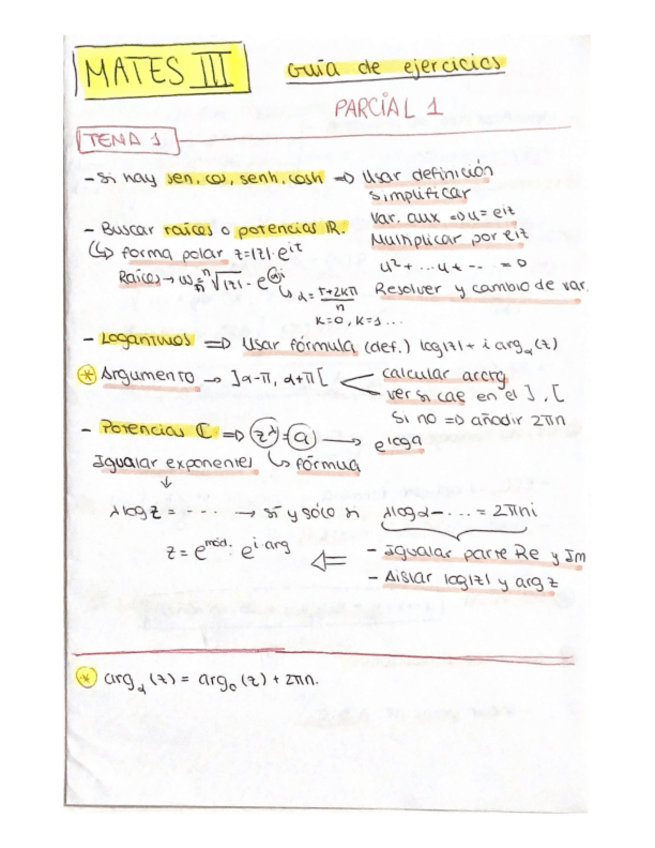 MATES III
Guía de ejercicios
PARCIAL 1
TEMA 1
- Si hay sen, cos, senh, cosh => Usar definición
simplificar
Var. aux => u = e^iz
- Buscar raíces o potencias IR.
Multiplicar por e^iz
↳ forma polar z=|z|·e^iτ
u² + ... u + -- = 0
Raíces → ω = ⁿ√|z| · e^αi
↳ α = τ+2kπ/n
Resolver y cambio de var.
k=0, k=1 ...
- Logaritmos => Usar fórmula (def.) log|z| + i arg_α(z)
* Argumento → ]α-π, α+π[
calcular arctg
ver si cae en el ] , [
Si no => añadir 2πn
- Potencias ℂ => z^λ = a → e^loga
Igualar exponentes ↳ fórmula
↓
λ log z = ..... → sí y sólo si λ log z - ... = 2πni
z = e^mód. e^i·arg <=
- Igualar parte Re y Im
- Aislar log|z| y arg z
* arg_α(z) = arg_0(z) + 2πn.